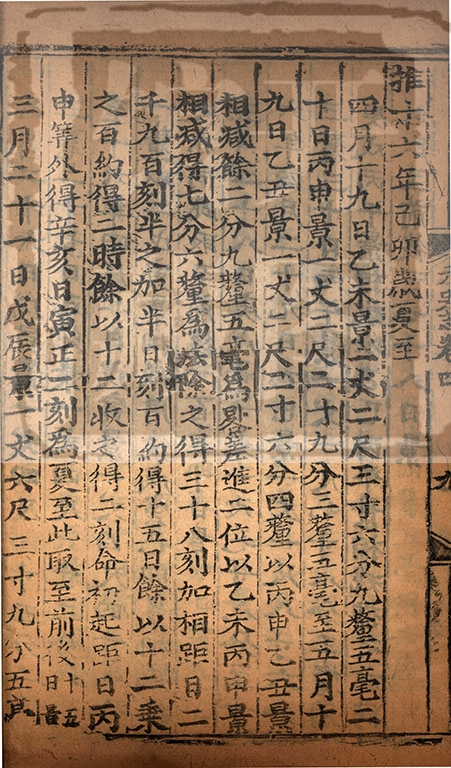 推十六年己卯歲夏至
四月十九日乙未景一丈二尺三寸六分九釐五毫二
十日丙申景一丈二尺二寸九分三釐五毫至五月十
九日乙丑景一丈二尺二寸六分四釐以丙申乙丑景
相减餘二分九釐五毫爲晷差進二位以乙未丙申景
相减得七分六釐爲法除之得三十八刻加相距日二
千九百刻半之加半日刻百約得十五日餘以十二乗
之百約得二時餘以十二收之得二刻命初起距日丙
申筭外得辛亥日寅正二刻爲夏至此取至前後十五日景
三月二十一日戊辰景一丈六尺三寸九分五毫